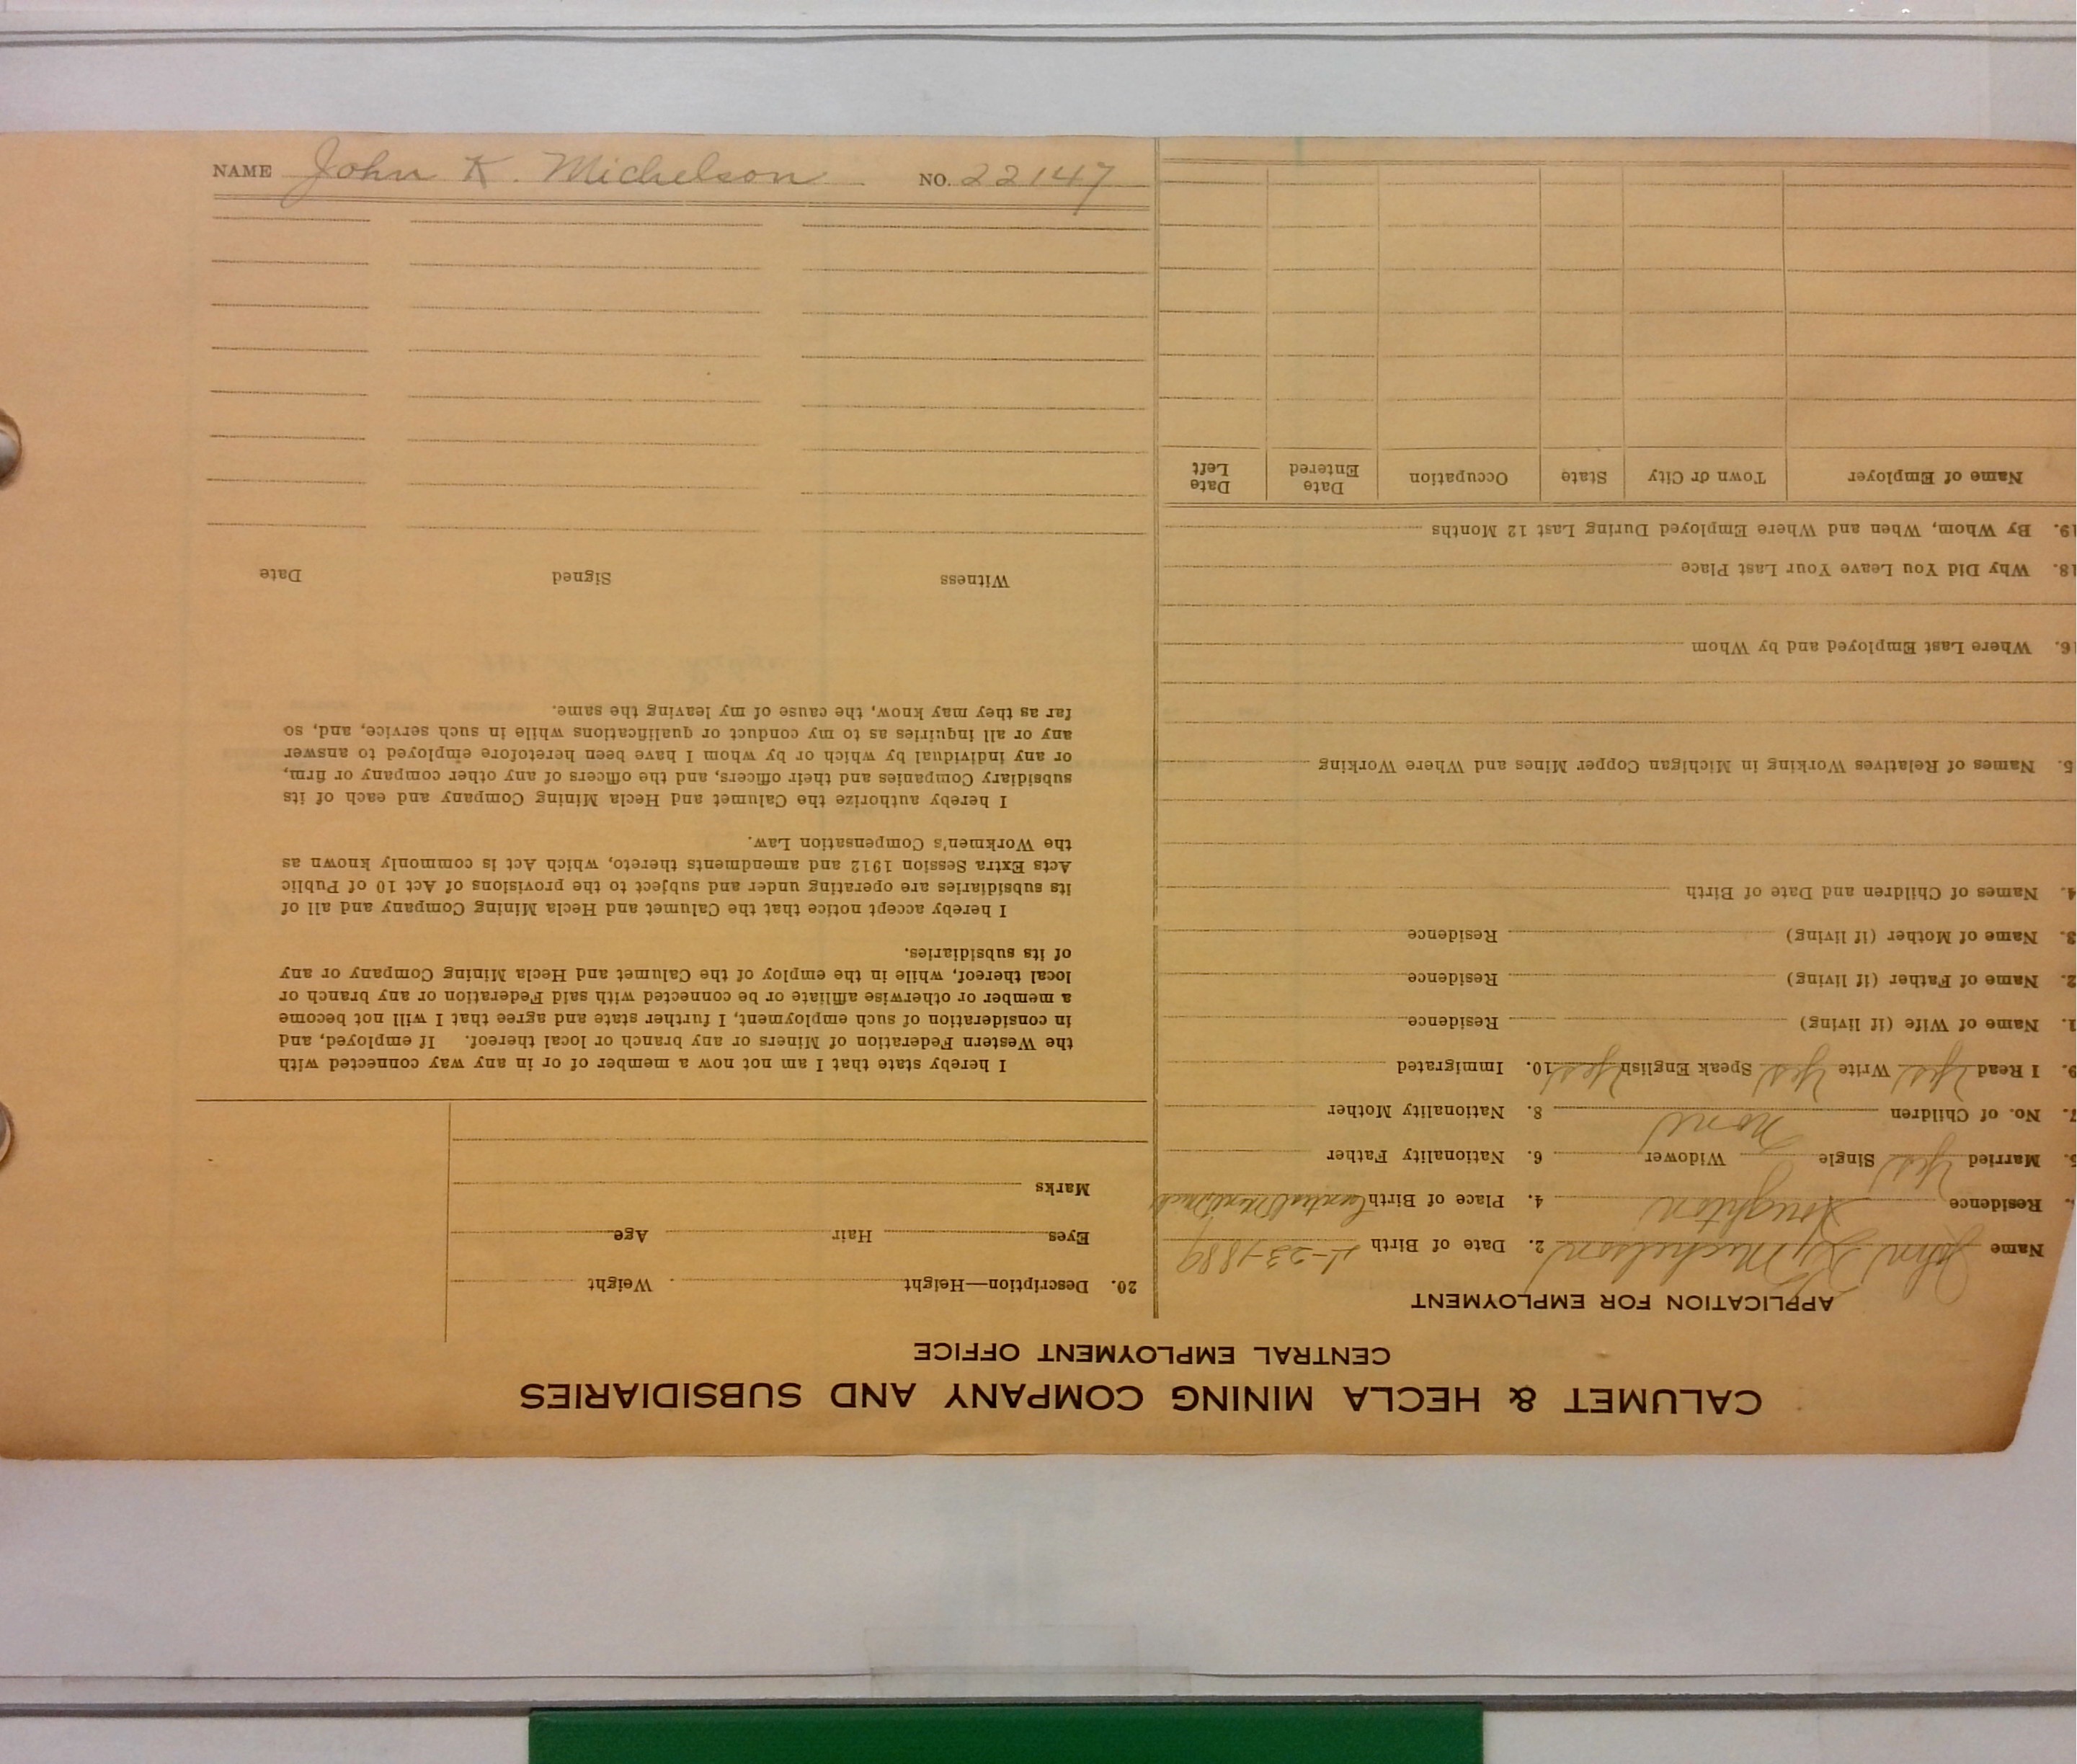 NAME John K. Michelson NO. 22147
CALUMET & HECLA MINING COMPANY AND SUBSIDIARIES
CENTRAL EMPLOYMENT OFFICE
APPLICATION FOR EMPLOYMENT
Name John K. Michelson 2. Date of Birth
Residence Houghton 4. Place of Birth
Married Yes Single Widower 6. Nationality Father
7. No. of Children none 8. Nationality Mother
9. I Read Yes Write Yes Speak English Yes 10. Immigrated
1. Name of Wife (if living) Residence
2. Name of Father (if living) Residence
3. Name of Mother (if living) Residence
4. Names of Children and Date of Birth
5. Names of Relatives Working in Michigan Copper Mines and Where Working
6. Where Last Employed and by Whom
18. Why Did You Leave Your Last Place
19. By Whom, When and Where Employed During Last 12 Months
Name of Employer Town or City State Occupation Date Entered Date Left
20. Description—Height Weight
Eyes Hair Age
Marks
I hereby state that I am not now a member of or in any way connected with
the Western Federation of Miners or any branch or local thereof. If employed, and
in consideration of such employment, I further state and agree that I will not become
a member or otherwise affiliate or be connected with said Federation or any branch or
local thereof, while in the employ of the Calumet and Hecla Mining Company or any
of its subsidiaries.
I hereby accept notice that the Calumet and Hecla Mining Company and all of
its subsidiaries are operating under and subject to the provisions of Act 10 of Public
Acts Extra Session 1912 and amendments thereto, which Act is commonly known as
the Workmen's Compensation Law.
I hereby authorize the Calumet and Hecla Mining Company and each of its
subsidiary Companies and their officers, and the officers of any other company or firm,
or any individual by which or by whom I have been heretofore employed to answer
any or all inquiries as to my conduct or qualifications while in such service, and, so
far as they may know, the cause of my leaving the same.
Witness Signed Date